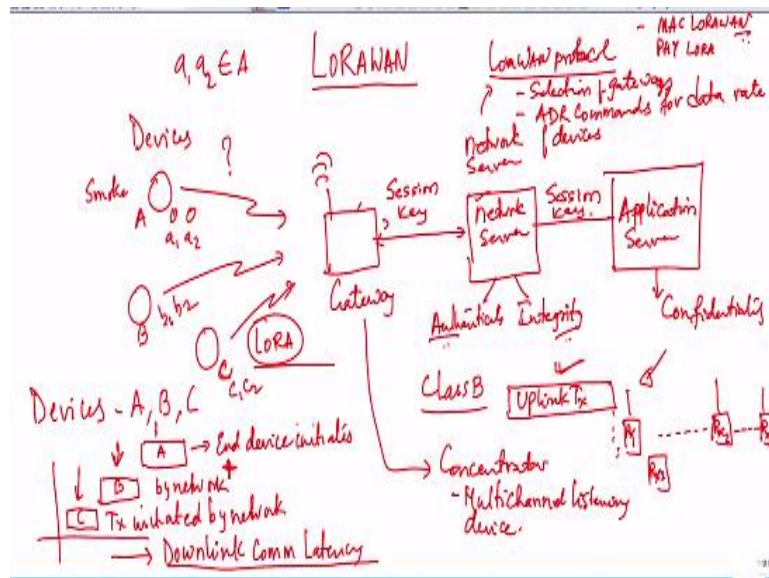 a, a2 ∈ A
LORAWAN
LoRaWAN protocol
- MAC LORAWAN
PHY LORA
- Selection of gateways
- ADR Commands for data rate
of devices
Network
Server
Devices
?
Smoke
A
a1 a2
Session
Key
Network
Server
Session
Key.
Application
Server
Gateway
B
b1, b2
C
C1, C2
LORA
Authenticates Integrity
Confidentiality
Class B
Uplink Tx
Rx2
Devices - A, B, C
A → End device initiates
B by network +
C Tx initiated by network
→ Downlink Comm Latency
Concentrator
- Multichannel listening
device.